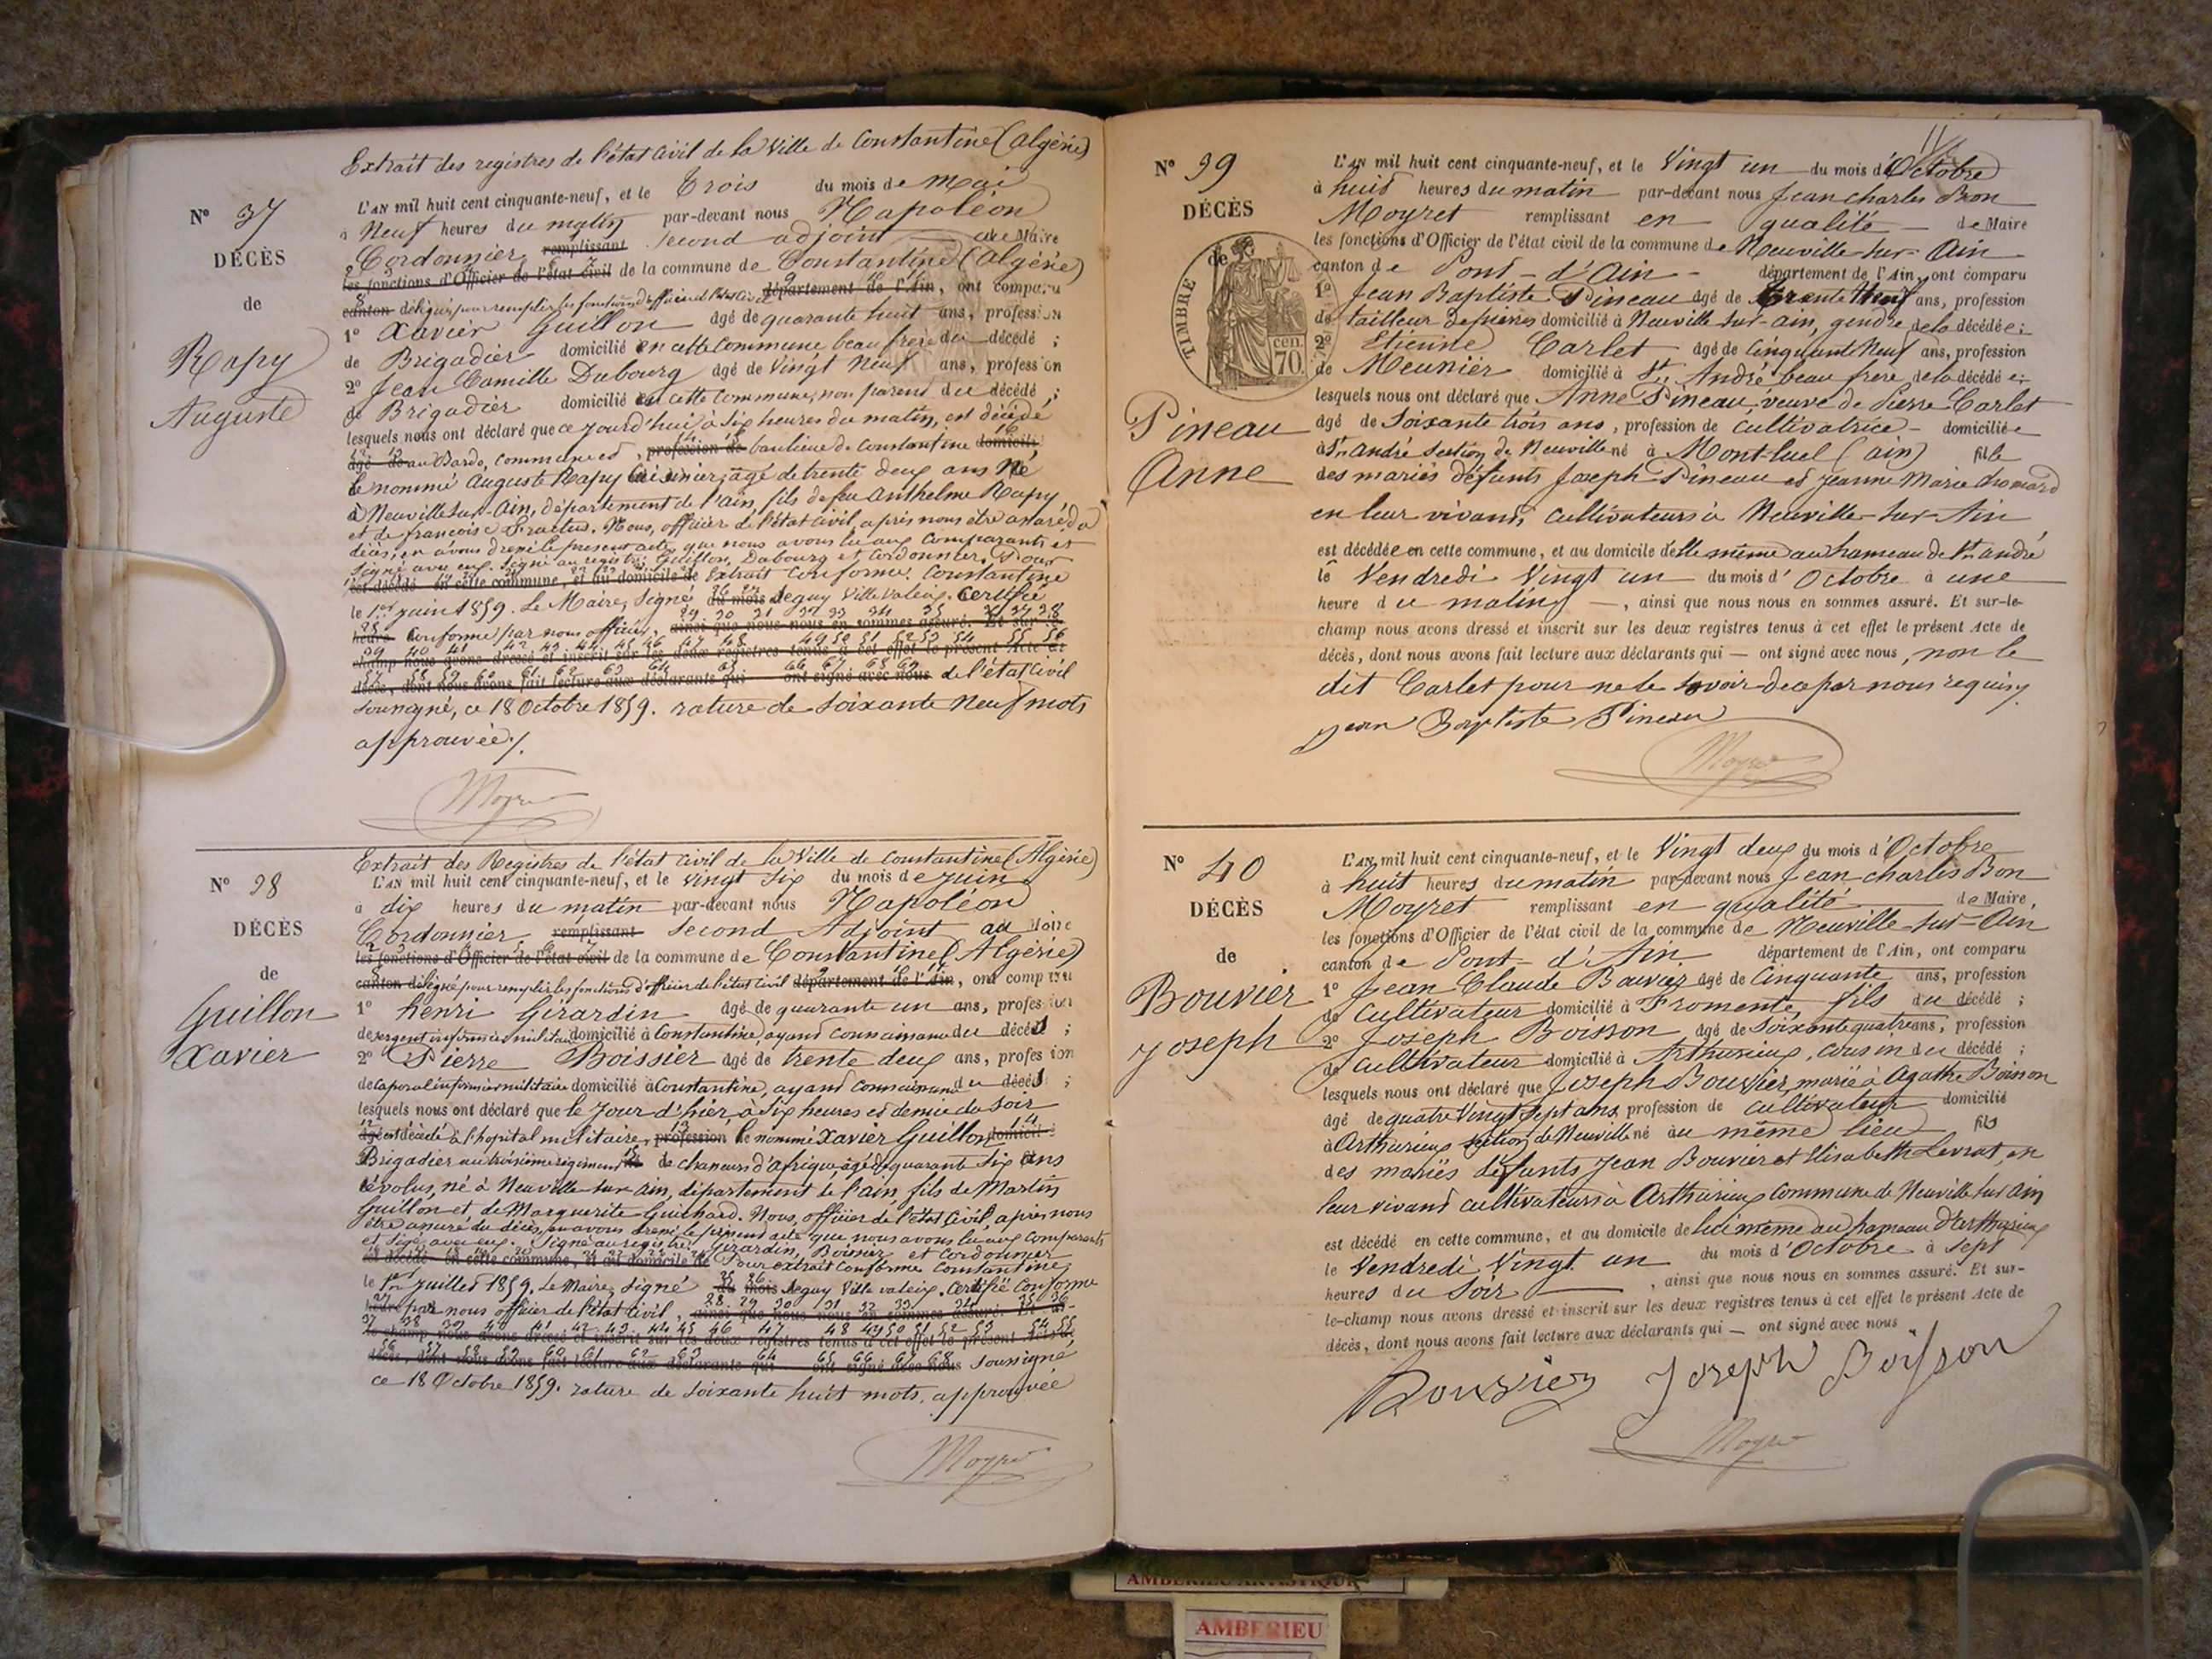 Extrait des registres de l'état Civil de la Ville de Constantine (Algérie)
N° 37
DÉCÈS
de
Rapy
Auguste
L'AN mil huit cent cinquante-neuf, et le Trois du mois de Mai
à Neuf heures du matin par-devant nous Napoléon
Cordonnier, remplissant second adjoint au Maire
les fonctions d'Officier de l'état civil de la commune de Constantine (Algérie)
canton délégué pour remplir les fonctions d'officier de l'état civil département de l'Ain, ont comparu
1° Xavier Guillon âgé de quarante huit ans, profession
de Brigadier domicilié en cette Commune, beau frère du décédé ;
2° Jean Camille Dubourg âgé de Vingt Neuf ans, profession
de Brigadier domicilié en cette Commune, non parent du décédé ;
lesquels nous ont déclaré que ce jourd'hui à Six heures du matin, est décédé
âgé de au Bardo, commune et profession de banlieue de Constantine domicilié
le nommé Auguste Rapy Cuisinier, âgé de trente deux ans Né
à Neuville sur-Ain, département de l'ain, fils de feu Anthelme Rapy
et de francoise Fractus. Nous, officier de l'état civil, après nous être assuré du
décès, en avons dressé le présent acte, que nous avons lu aux Comparants et
signé avec eux. Signé au registre, Guillon, Dubourg et Cordonnier. Pour
est décédé en cette commune, et au domicile de Extrait Conforme. Constantine
le 1er juin 1859. Le Maire, Signé du mois Seguy Villevaleix. Certifié
heure Conforme par nous officier, ainsi que nous nous en sommes assuré. Et sur-le-
champ nous avons dressé et inscrit sur les deux registres tenus à cet effet le présent Acte de
décès, dont nous avons fait lecture aux déclarants qui ont signé avec nous de l'état Civil
soussigné, ce 18 Octobre 1859. rature de soixante Neuf mots
approuvée/.
Moyret
N° 38
DÉCÈS
de
Guillon
Xavier
Extrait des Registres de l'état civil de la Ville de Constantine (Algérie)
L'AN mil huit cent cinquante-neuf, et le vingt Six du mois de juin
à dix heures du matin par-devant nous Napoléon
Cordonnier remplissant second Adjoint au Maire
les fonctions d'Officier de l'état civil de la commune de Constantine (Algérie)
canton délégué pour remplir les fonctions d'officier de l'état civil département de l'Ain, ont comparu
1° henri Girardin âgé de quarante un ans, profession
de sergent infirmier militaire domicilié à Constantine, ayant connaissance du décédé ;
2° Pierre Boissier âgé de trente deux ans, profession
de caporal infirmier militaire domicilié à Constantine, ayant connaissance du décédé ;
lesquels nous ont déclaré que le jour d'hier à Six heures et demie du Soir
âgé est décédé à l'hopital militaire, profession le nommé Xavier Guillon domicilié
Brigadier au troisième régiment de chasseurs d'afrique âgé de quarante Six ans
révolus, né à Neuville-sur-ain, département de l'ain, fils de Martin
Guillon et de Marguerite Guichard. Nous, officier de l'état Civil, après nous
être assuré du décès, en avons dressé le présent acte que nous avons lu aux Comparants
et signé avec eux. Signé au registre, Girardin, Boissier et Cordonnier
est décédé en cette commune, et au domicile de Pour extrait Conforme Constantine
le 1er juillet 1859. Le Maire, Signé du mois Seguy Villevaleix. Certifié Conforme
heure par nous officier de l'état Civil, ainsi que nous nous en sommes assuré. Et sur-
le-champ nous avons dressé et inscrit sur les deux registres tenus à cet effet le présent Acte de
décès, dont nous avons fait lecture aux déclarants qui ont signé avec nous soussigné
ce 18 Octobre 1859. rature de soixante huit mots, approuvée
Moyret
N° 39
DÉCÈS
de
TIMBRE
cen.
70.
Pineau
Anne
L'AN mil huit cent cinquante-neuf, et le Vingt un du mois d'Octobre
à huit heures du matin par-devant nous Jean charles Bon
Moyret remplissant en qualité de Maire
les fonctions d'Officier de l'état civil de la commune de Neuville-sur-Ain
canton de Pont-d'Ain département de l'Ain, ont comparu
1° Jean Baptiste Pineau âgé de trente Neuf ans, profession
de tailleur de pierres domicilié à Neuville sur-ain, gendre de la décédée ;
2° Etienne Carlet âgé de Cinquante Neuf ans, profession
de Meunier domicilié à St André beau frere de la décédée ;
lesquels nous ont déclaré que Anne Pineau, veuve de Pierre Carlet
âgé de Soixante trois ans, profession de cultivatrice domiciliée
à St André section de Neuville né à Mont-luel (ain) fille
des mariés défunts Joseph Pineau et jeanne Marie
en leur vivant, cultivateurs à Neuville-sur-Ain
est décédée en cette commune, et au domicile d'elle même au hameau de St André
le Vendredi Vingt un du mois d'Octobre à une
heure du matin, ainsi que nous nous en sommes assuré. Et sur-le-
champ nous avons dressé et inscrit sur les deux registres tenus à cet effet le présent Acte de
décès, dont nous avons fait lecture aux déclarants qui — ont signé avec nous, non le
dit Carlet pour ne le savoir de ce par nous requis/.
Jean Baptiste Pineau
Moyret
N° 40
DÉCÈS
de
Bouvier
Joseph
L'AN mil huit cent cinquante-neuf, et le Vingt deux du mois d'Octobre
à huit heures du matin par-devant nous Jean charles Bon
Moyret remplissant en qualité de Maire,
les fonctions d'Officier de l'état civil de la commune de Neuville-sur-Ain
canton de Pont-d'Ain département de l'Ain, ont comparu
1° Jean Claude Bouvier âgé de Cinquante ans, profession
de Cultivateur domicilié à Fromente, fils du décédé ;
2° Joseph Boisson âgé de Soixante quatre ans, profession
de Cultivateur domicilié à Arthurieux, cousin du décédé ;
lesquels nous ont déclaré que Joseph Bouvier, marié à Agathe Boisson
âgé de quatre Vingt Sept ans, profession de cultivateur domicilié
à Arthurieux section de Neuville né au même lieu fils
des mariés défunts Jean Bouvier et Elisabeth Levrat, en
leur vivant cultivateurs à Arthurieux Commune de Neuville sur Ain
est décédé en cette commune, et au domicile de lui même au hameau d'Arthurieux
le Vendredi Vingt un du mois d'Octobre à Sept
heures du Soir, ainsi que nous nous en sommes assuré. Et sur-
le-champ nous avons dressé et inscrit sur les deux registres tenus à cet effet le présent Acte de
décès, dont nous avons fait lecture aux déclarants qui — ont signé avec nous
Bouvier Joseph Boisson
Moyret
AMBERIEU ARTISTIQUE
AMBERIEU